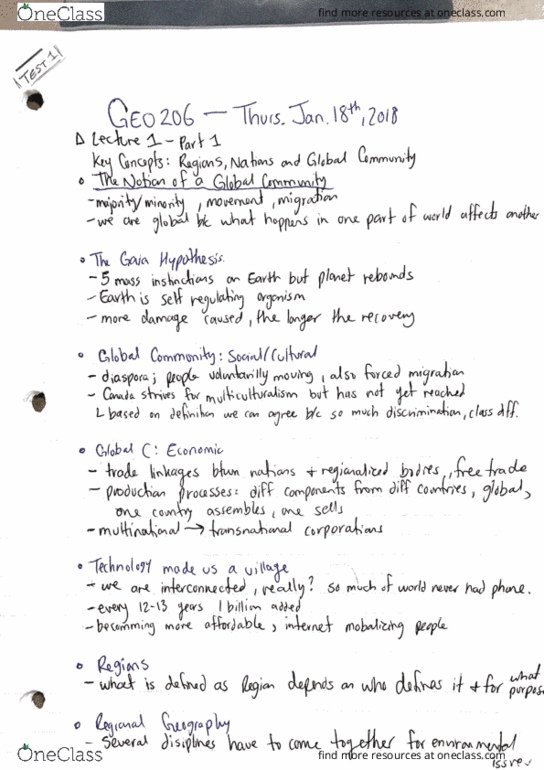 OneClass
find more resources at oneclass.com
TEST 1
GEO206 — Thurs. Jan. 18th, 2018
Lecture 1 - Part 1
Key Concepts: Regions, Nations and Global Community
The Notion of a Global Community
- majority/minority, movement, migration
- we are global b/c what happens in one part of world affects another
The Gaia Hypothesis
- 5 mass instinctions on Earth but planet rebounds
- Earth is self regulating organism
- more damage caused, the longer the recovery
Global Community: Social/Cultural
- diaspora; people voluntarilly moving, also forced migration
- Canada strives for multiculturalism but has not yet reached
L based on definition we can agree b/c so much discrimination, class diff.
Global C: Economic
- trade linkages btwn nations + regionalized bodies, free trade
- production processes: diff components from diff countries, global,
one country assembles, one sells
- multinational → transnational corporations
Technology made us a village
- we are interconnected, really? so much of world never had phone.
- every 12-13 years 1 billion added
- becomming more affordable, internet mobalizing people
Regions
- what is defined as Region depends on who defines it + for what purpose
Regional Geography
- Several disiplines have to come together for environmental issues
OneClass
find more resources at oneclass.com